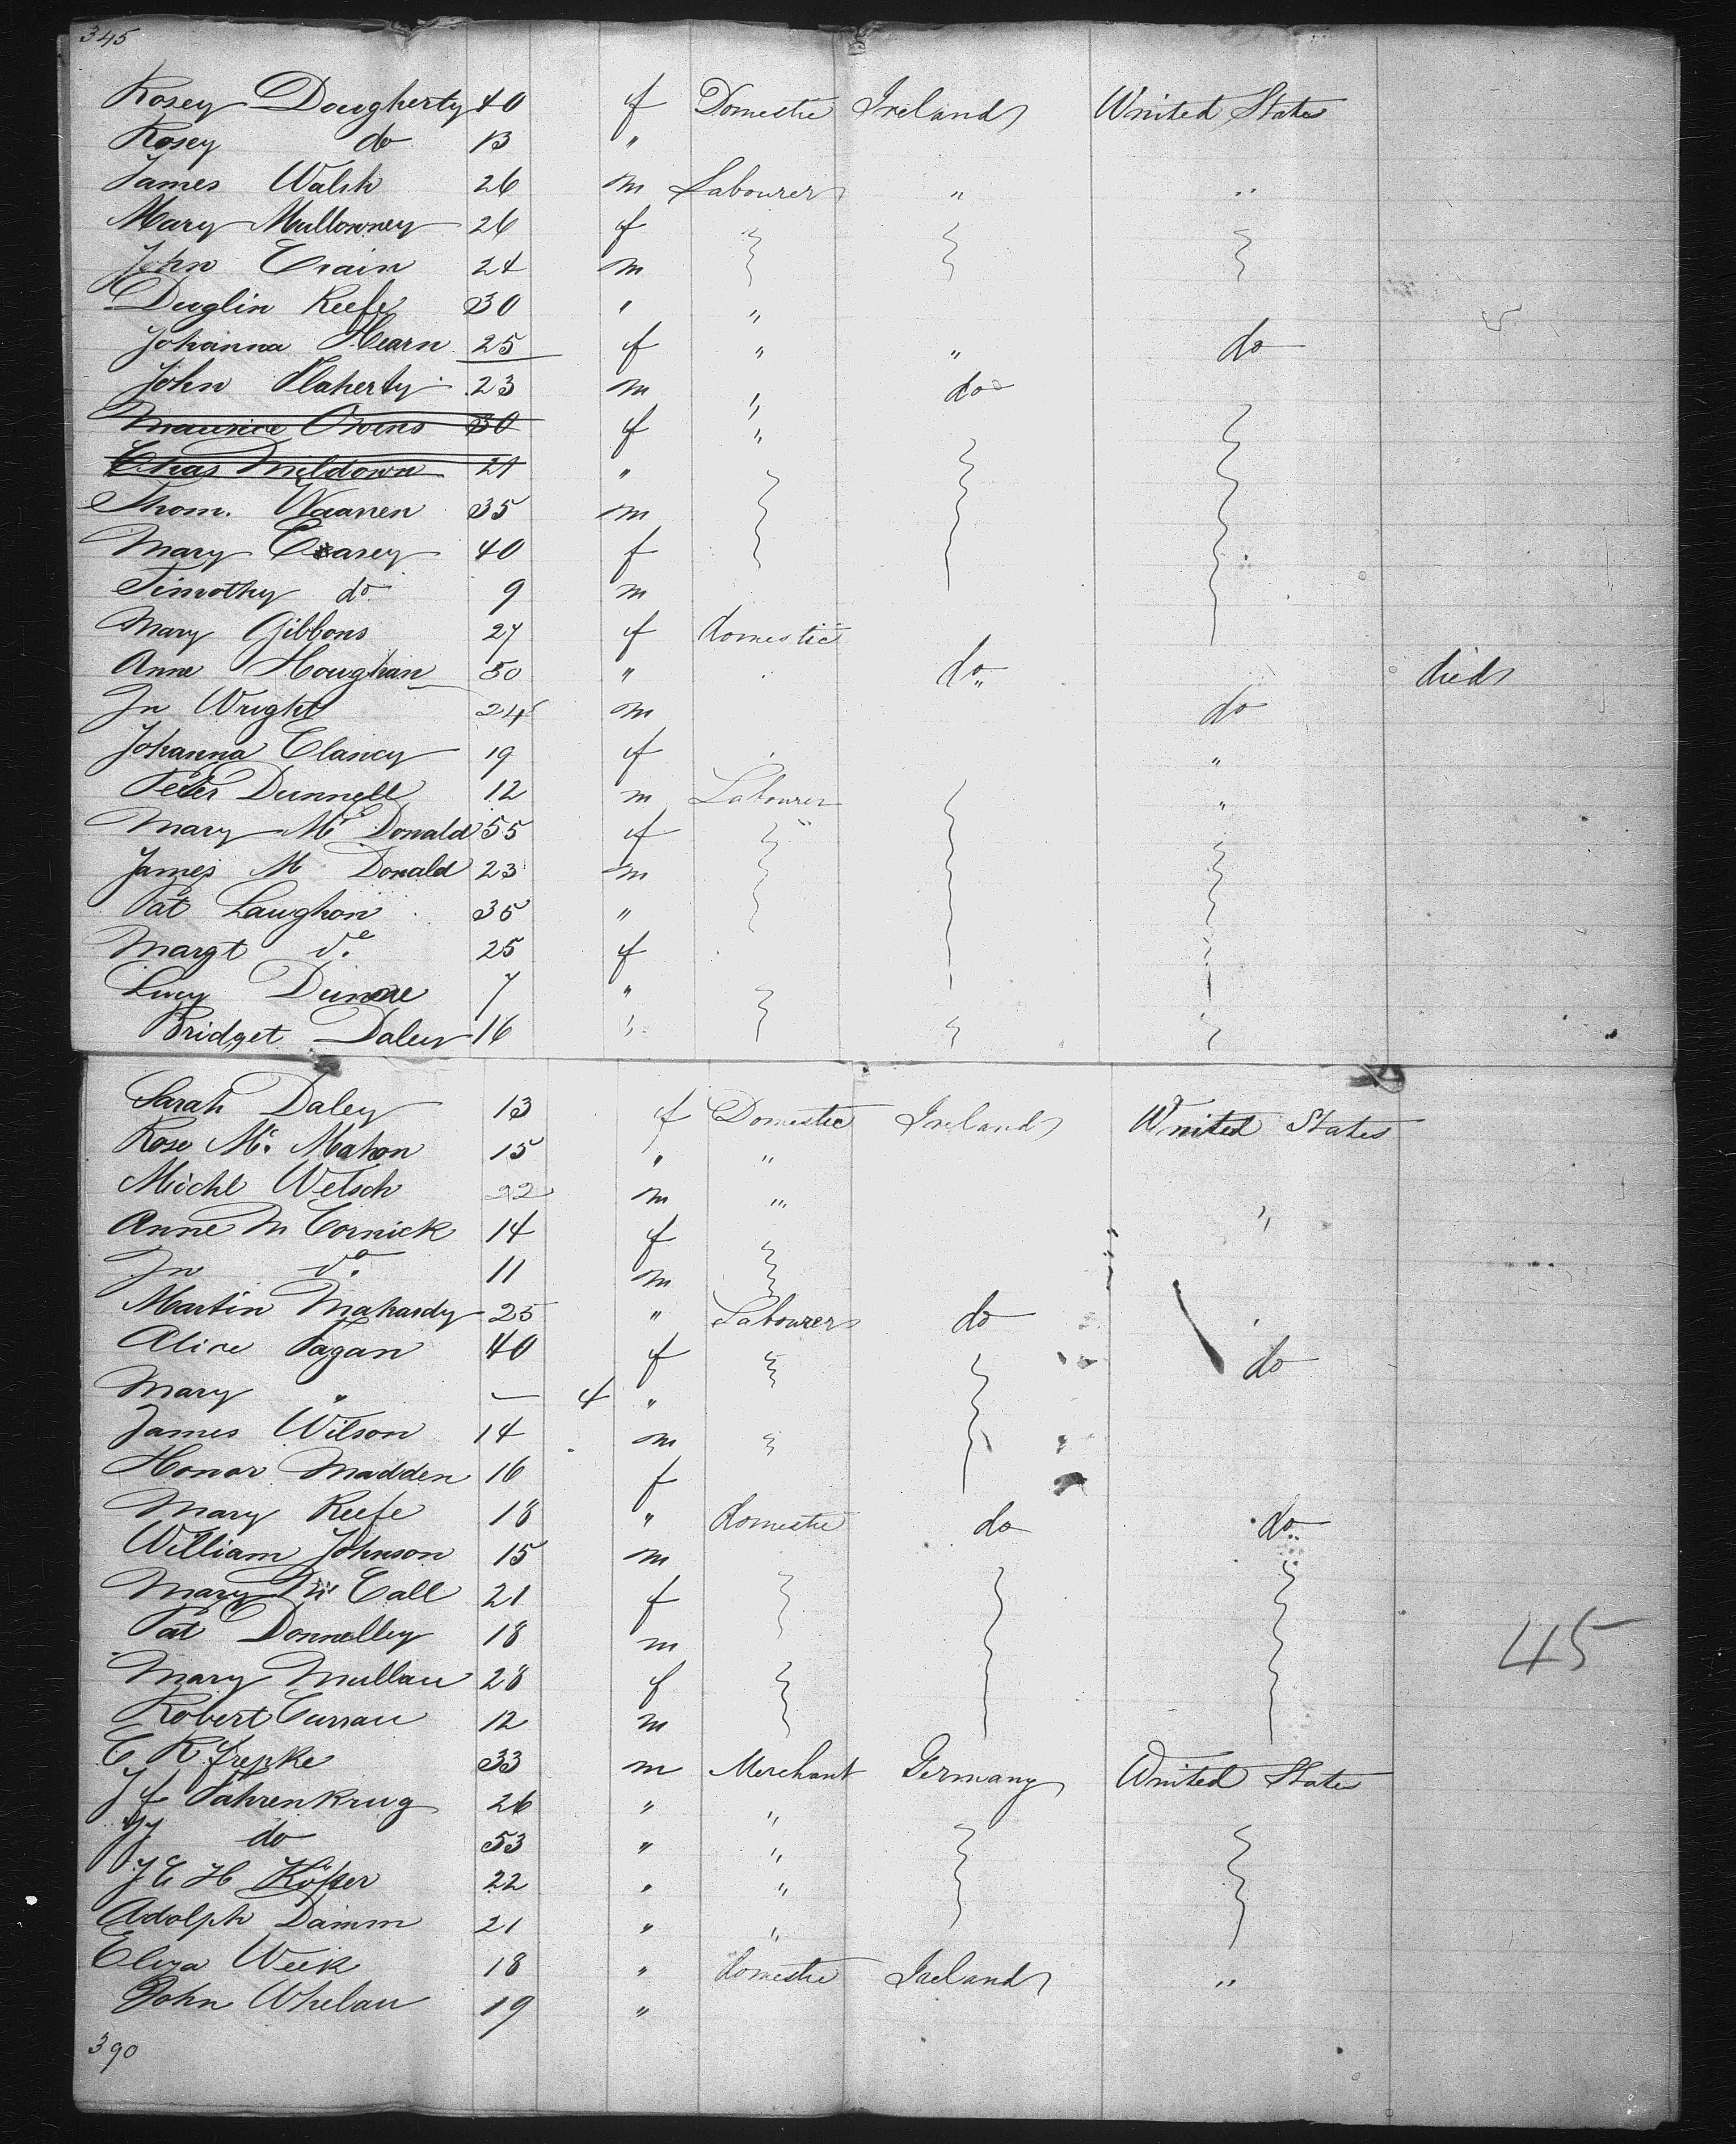 345
Rosey Dougherty 40 f Domestic Ireland United States
Rosey do 13 "
James Walsh 26 m Labourer " "
Mary Mullowney 26 f
John Crain 24 m
Duglin Keefe 30 " "
Johanna Hearn 25 f " " do
John Flaherty 23 m " do
Maurice Owens 30 f "
Chas Mildown 21 "
Thom. Waanen 35 m
Mary Casey 40 f
Timothy do 9 m
Mary Gibbons 27 f domestic
Anne Houghan 50 " do died
Jn Wright 24 m do
Johanna Clancy 19 f "
Peter Dunnell 12 m Labourer "
Mary Mc Donald 55 f
James M Donald 23 m
Pat Laughon 35 "
Margt do 25 f
Lucy Dunne 7 "
Bridget Daley 16 "
Sarah Daley 13 f Domestic Ireland United States
Rose Mc Mahon 15 " "
Michl Welsch 22 m " "
Anne M Cornick 14 f
Jn do 11 m
Martin Mahardy 25 " Labourer do
Alice Fagan 40 f do
Mary " — 4 "
James Wilson 14 m
Honor Madden 16 f
Mary Keefe 18 " domestic do do
William Johnson 15 m
Mary Mc Call 21 f
Pat Donnelley 18 m
45
Mary Mullau 28 f
Robert Currau 12 m
C R Frepke 33 m Merchant Germany United States
J f Fahrenkrug 26 " "
do 53 " "
J C H 22 " "
Adolph Damm 21 " "
Eliza Week 18 " domestic Ireland "
John Whelau 19 "
390